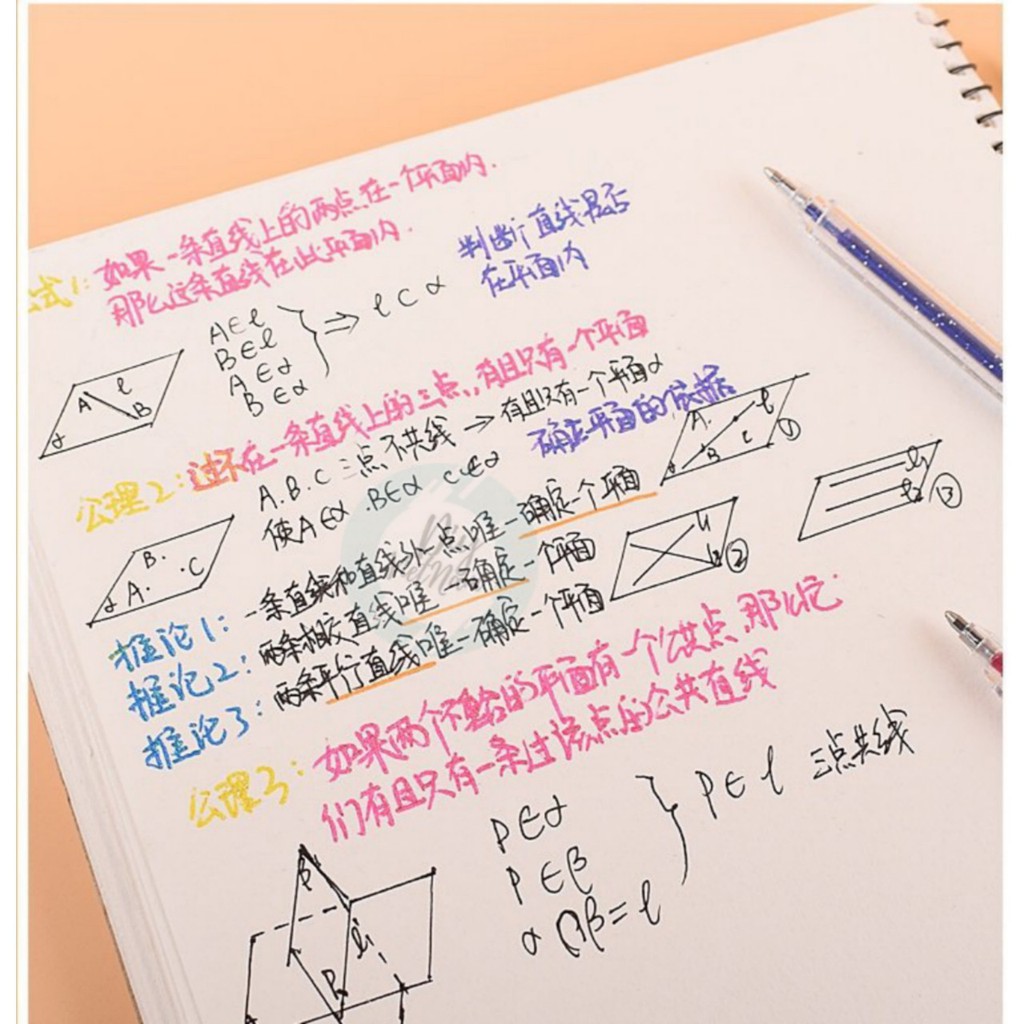 如果一条直线上的两点在一个平面内.
式1: 那么这条直线在此平面内.
判断直线是否
在平面内
A∈l
B∈l
A∈α
B∈α
⇒ l⊂α
A
l
B
α
公理2: 过不在一条直线上的三点,有且只有一个平面
A.B.C三点不共线 → 有且只有一个平面α
使A∈α.B∈α C∈α
确定平面的依据
A.
l
B
①
B.
A.
.C
α
推论1: 一条直线和直线外一点唯一确定一个平面
推论2: 两条相交直线唯一确定一个平面
推论3: 两条平行直线唯一确定一个平面
l1
l2
②
l1
l2
③
公理3: 如果两个不重合的平面有一个公共点,那么它
们有且只有一条过该点的公共直线
P∈α
P∈β
α∩β=l
P∈l 三点共线